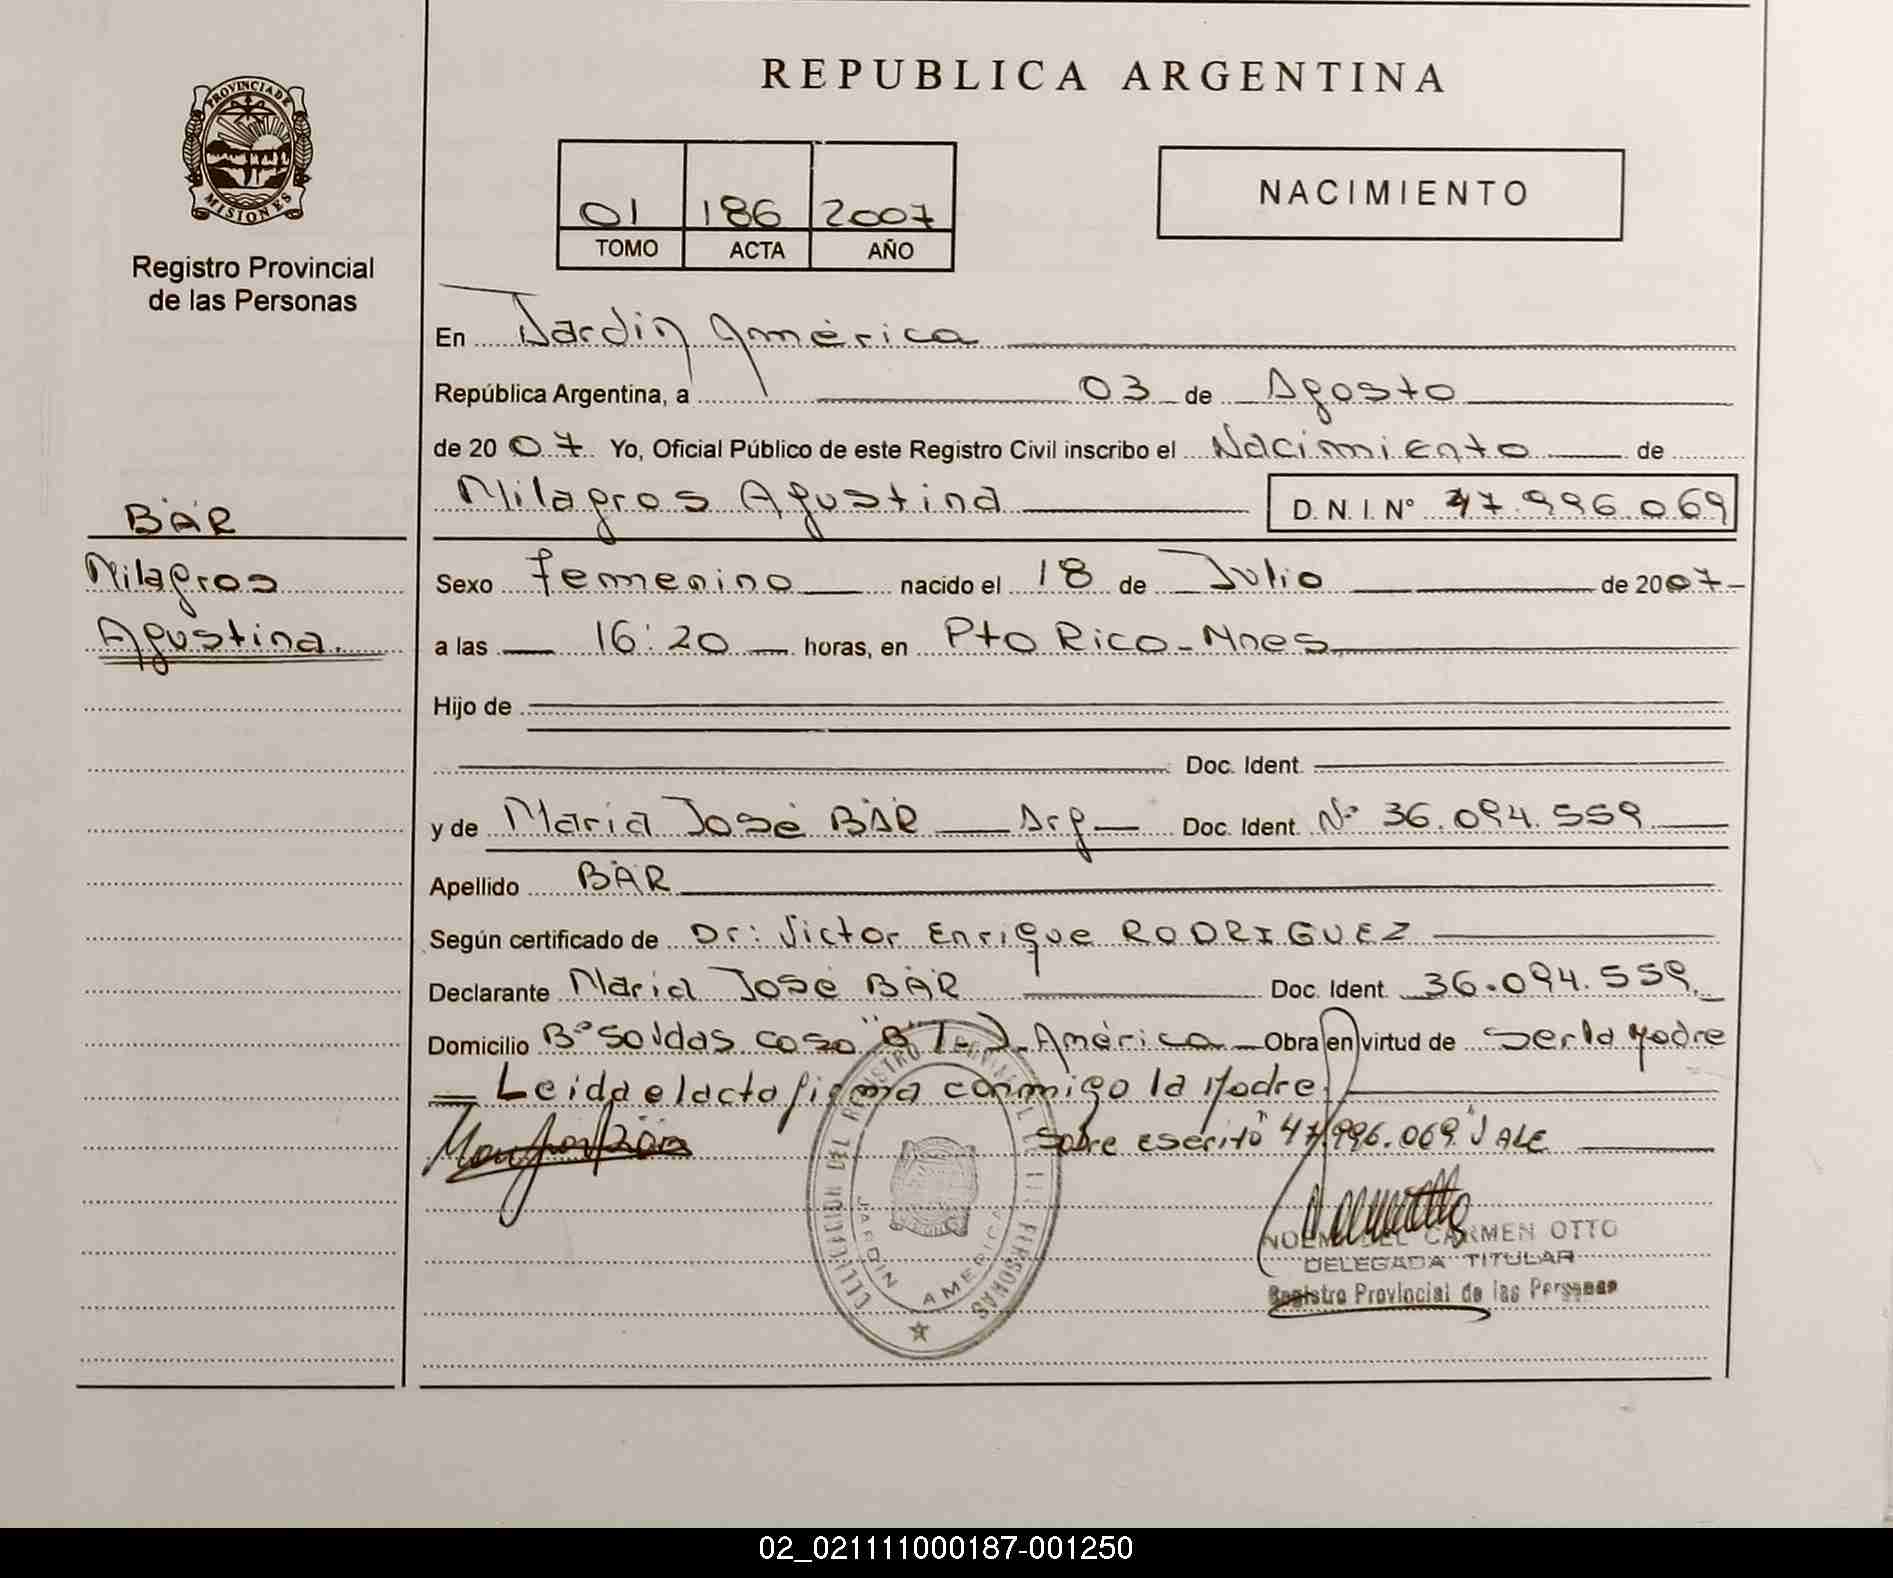 REPUBLICA ARGENTINA
PROVINCIA DE
MISIONES
Registro Provincial
de las Personas
01 186 2007
TOMO ACTA AÑO
NACIMIENTO
En Jardin América
República Argentina, a 03 de Agosto
de 2007 Yo, Oficial Público de este Registro Civil inscribo el Nacimiento de
Milagros Agustina D. N. I. N° 47.996.069
BÄR
Milagros
Agustina
Sexo femenino nacido el 18 de Julio de 2007-
a las 16:20 horas, en Pto Rico - Mnes
Hijo de
Doc. Ident.
y de Maria José BÄR Arg Doc. Ident. N° 36.094.559
Apellido BÄR
Según certificado de Dr: Victor Enrique RODRIGUEZ
Declarante Maria José BÄR Doc. Ident. 36.094.559.
Domicilio B° Soldas casa "B" J. América Obra en virtud de ser la Madre
Leida el acta firma conmigo la Madre.
Sobre escrito "47.996.069" VALE
REGISTRO PROVINCIAL DE LAS PERSONAS
JARDIN AMERICA
NOEMI DEL CARMEN OTTO
DELEGADA TITULAR
Registro Provincial de las Personas
02_021111000187-001250